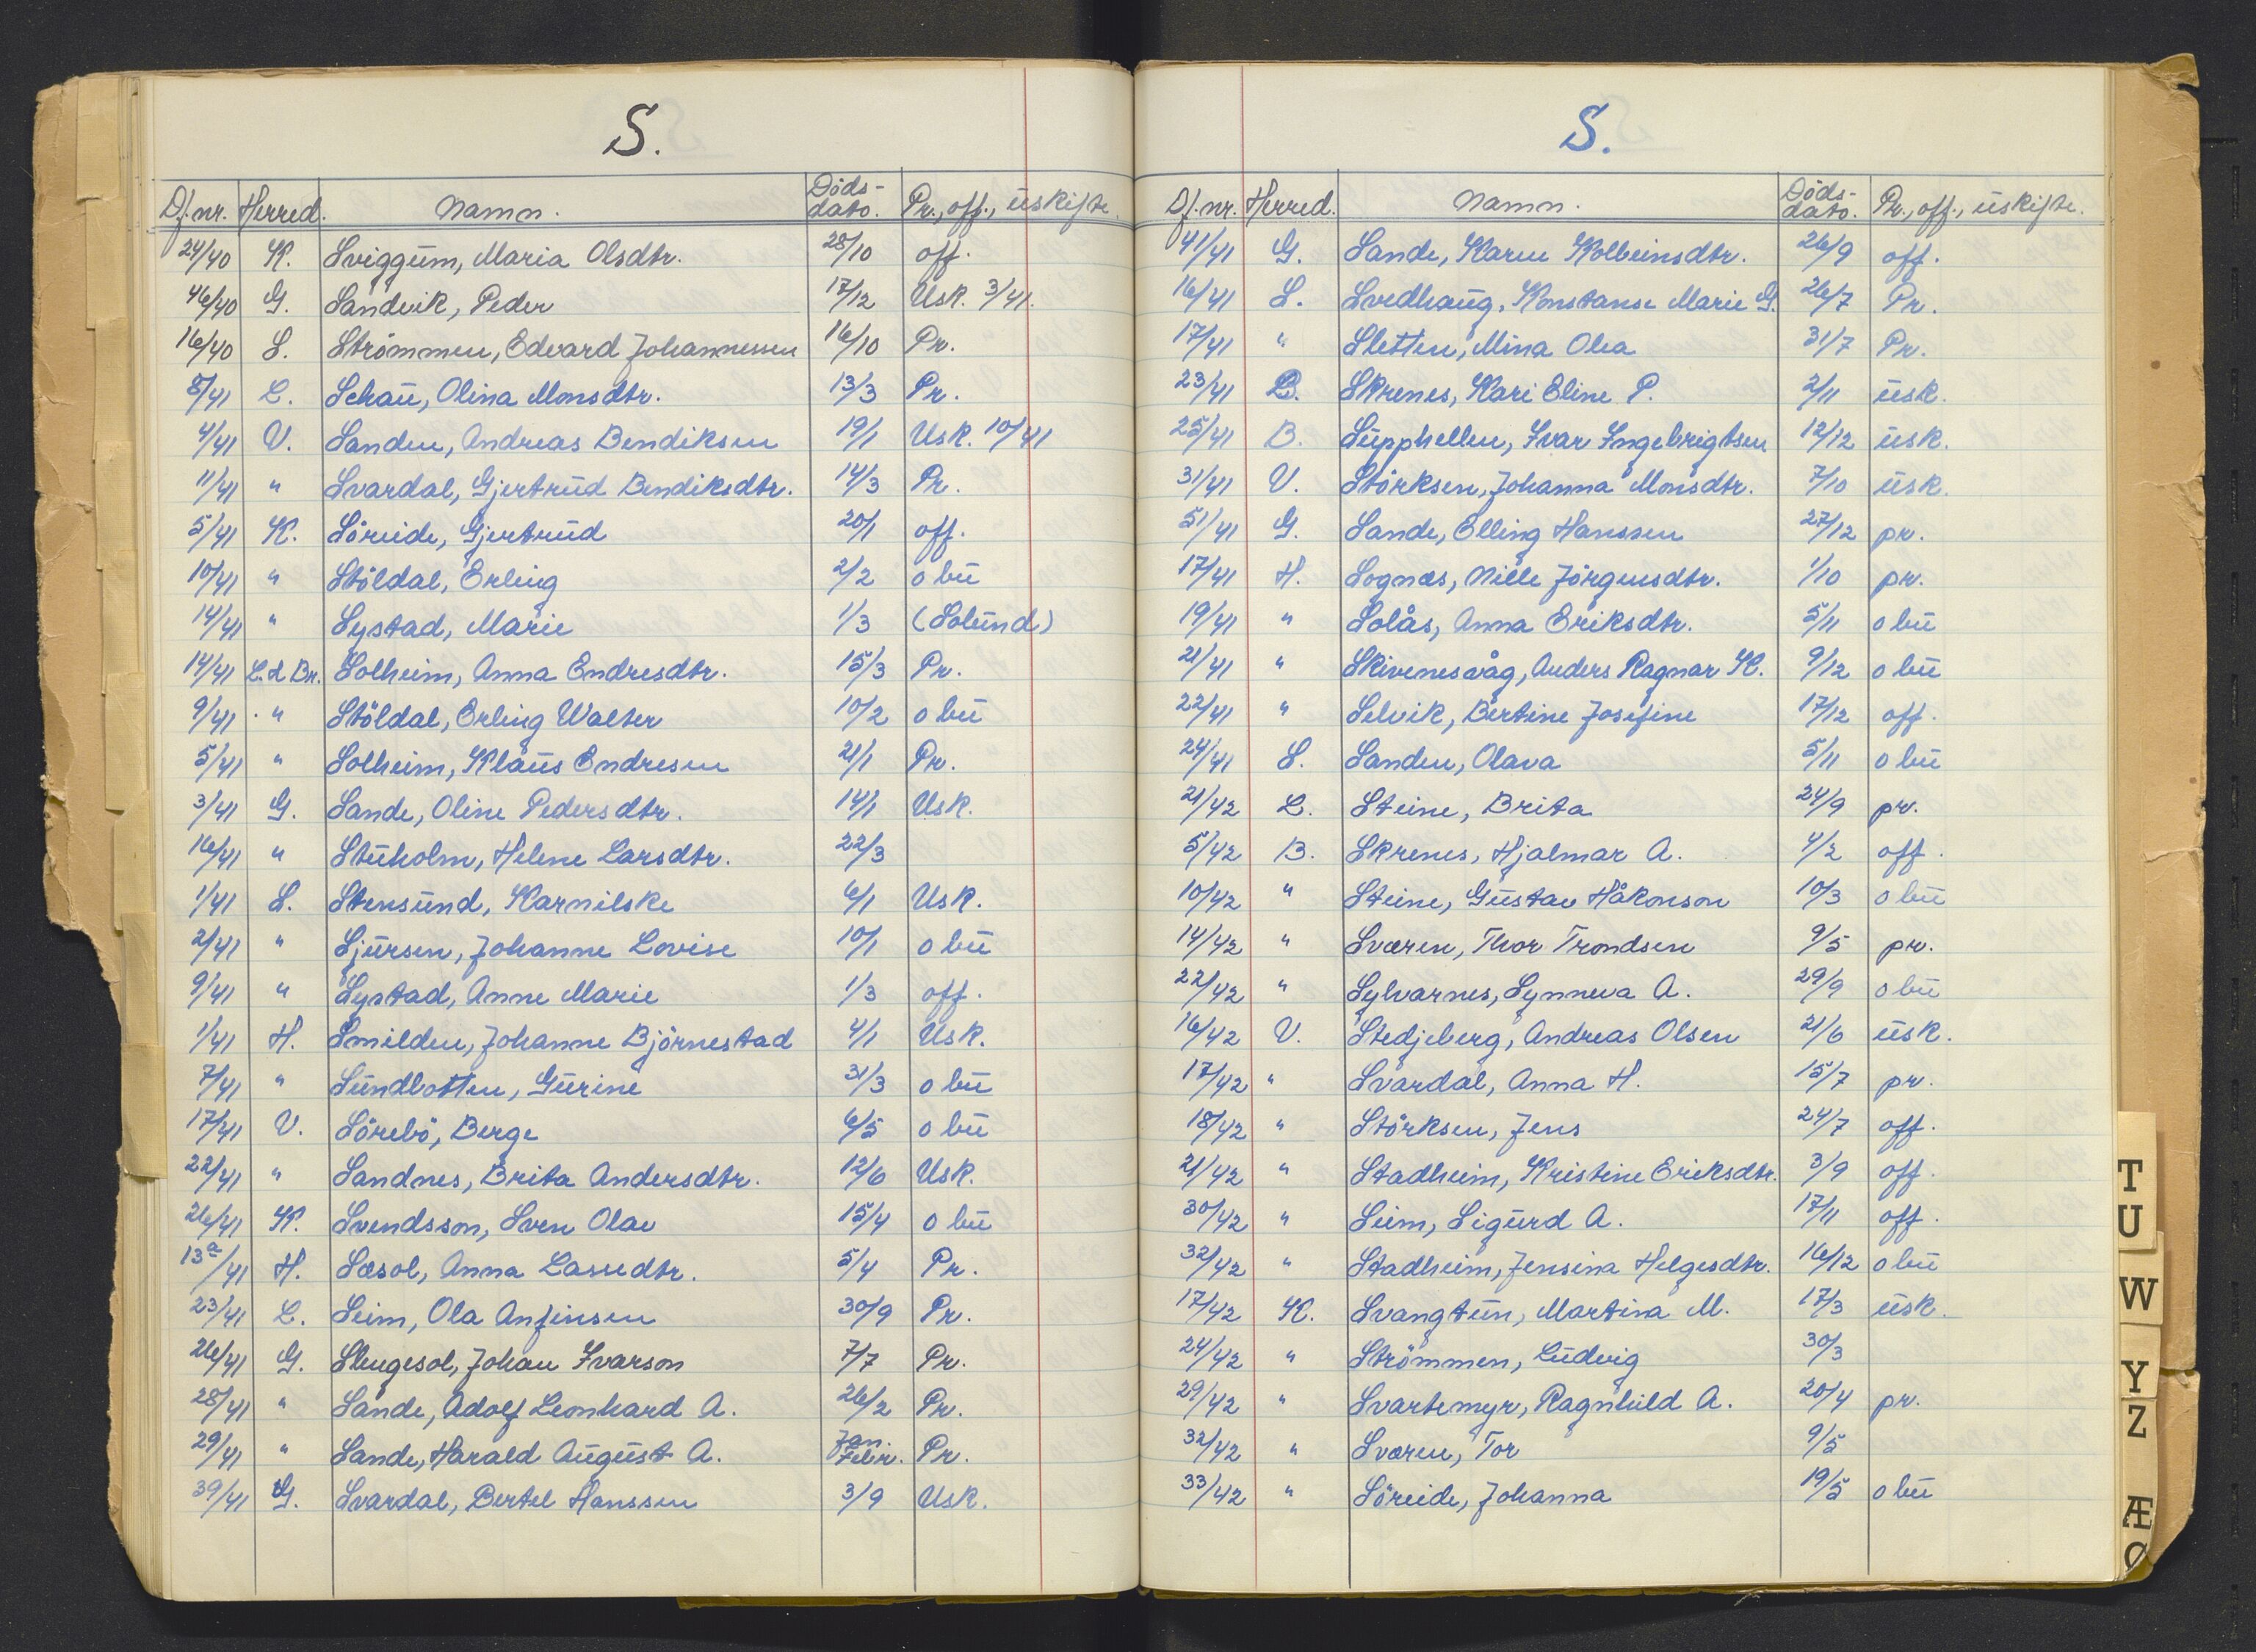 S.
Df.nr. Herred. Namn. Döds-dato. Pr., off., uskifte.
24/40 K. Sviggum, Maria Olsdtr. 28/10 off.
46/40 G. Sandvik, Peder 17/12 Usk. 3/41.
16/40 S. Strømmen, Edvard Johannessen 16/10 Pr.
8/41 L. Schau, Olina Monsdtr. 13/3 Pr.
4/41 V. Sanden, Andreas Bendiksen 19/1 Usk. 10/41
11/41 " Svardal, Gjertrud Bendiksdtr. 14/3 Pr.
5/41 K. Söreide, Gjertrud 20/1 off.
10/41 " Stöldal, Erling 2/2 o bu
14/41 " Systad, Marie 1/3 (Solund)
14/41 L. & Br. Solheim, Anna Endresdtr. 15/3 Pr.
9/41 " Stöldal, Erling Walter 10/2 o bu
5/41 " Solheim, Klaus Endresen 21/1 Pr.
3/41 G. Sande, Oline Pedersdtr. 14/1 Usk.
16/41 " Stuholm, Helene Larsdtr. 22/3
1/41 S. Stensund, Karnilske 6/1 Usk.
2/41 " Sjursen, Johanne Lovise 10/1 o bu
9/41 " Systad, Anne Marie 1/3 off.
1/41 H. Smilden, Johanne Björnestad 4/1 Usk.
7/41 " Sundbotten, Gurine 31/3 o bu
17/41 V. Sörebö, Berge 6/5 o bu
22/41 " Sandnes, Brita Andersdtr. 12/6 Usk.
26/41 K. Svendsson, Sven Olav 15/4 o bu
13a/41 H. Sæsol, Anna Lassedtr. 5/4 Pr.
23/41 L. Seim, Ola Anfinsen 30/9 Pr.
26/41 G. Slengesol, Johan Ivarson 7/7 Pr.
28/41 " Sande, Adolf Leonhard A. 26/2 Pr.
29/41 " Sande, Harald August A. Jan. Febr. Pr.
39/41 G. Svardal, Bertel Hanssen 3/9 Usk.
S.
Df.nr. Herred. Namn. Döds-dato. Pr., off., uskifte.
41/41 G. Sande, Karen Kolbeinsdtr. 26/9 off.
16/41 S. Svedhaug, Konstanse Marie G. 26/7 Pr.
17/41 " Sletten, Mina Olea 31/7 Pr.
23/41 B. Skrenes, Kari Eline P. 2/11 usk.
25/41 B. Supphellen, Ivar Ingebrigtsen 12/12 usk.
31/41 V. Störksen, Johanna Monsdtr. 7/10 usk.
51/41 G. Sande, Elling Hanssen 27/12 pr.
17/41 H. Sognæs, Nille Jörgensdtr. 1/10 pr.
19/41 " Solås, Anna Eriksdtr. 5/11 o bu
21/41 " Skivenesvåg, Anders Ragnar K. 9/12 o bu
22/41 " Selvik, Bertine Josefine 17/12 off.
24/41 S. Sanden, Olava 5/11 o bu
21/42 L. Steine, Brita 24/9 pr.
5/42 B. Skrenes, Hjalmar A. 4/2 off.
10/42 " Steine, Gustav Håkonson 10/3 o bu
14/42 " Sværen, Thor Trondsen 9/5 pr.
22/42 " Sylvarnes, Synneva A. 29/9 o bu
16/42 V. Stedjeberg, Andreas Olsen 21/6 usk.
17/42 " Svardal, Anna H. 15/7 pr.
18/42 " Störksen, Jens 24/7 off.
21/42 " Stadheim, Kristine Eriksdtr. 3/9 off.
30/42 " Seim, Sigurd A. 17/11 off.
32/42 " Stadheim, Jensina Helgesdtr. 16/12 o bu
17/42 K. Svangtun, Martina M. 17/3 usk.
24/42 " Strömmen, Ludvig 30/3
29/42 " Svartemyr, Ragnhild A. 20/4 pr.
32/42 " Sværen, Tor 9/5
33/42 " Söreide, Johanna 19/5 o bu
T
U
W
Y
Z
Æ